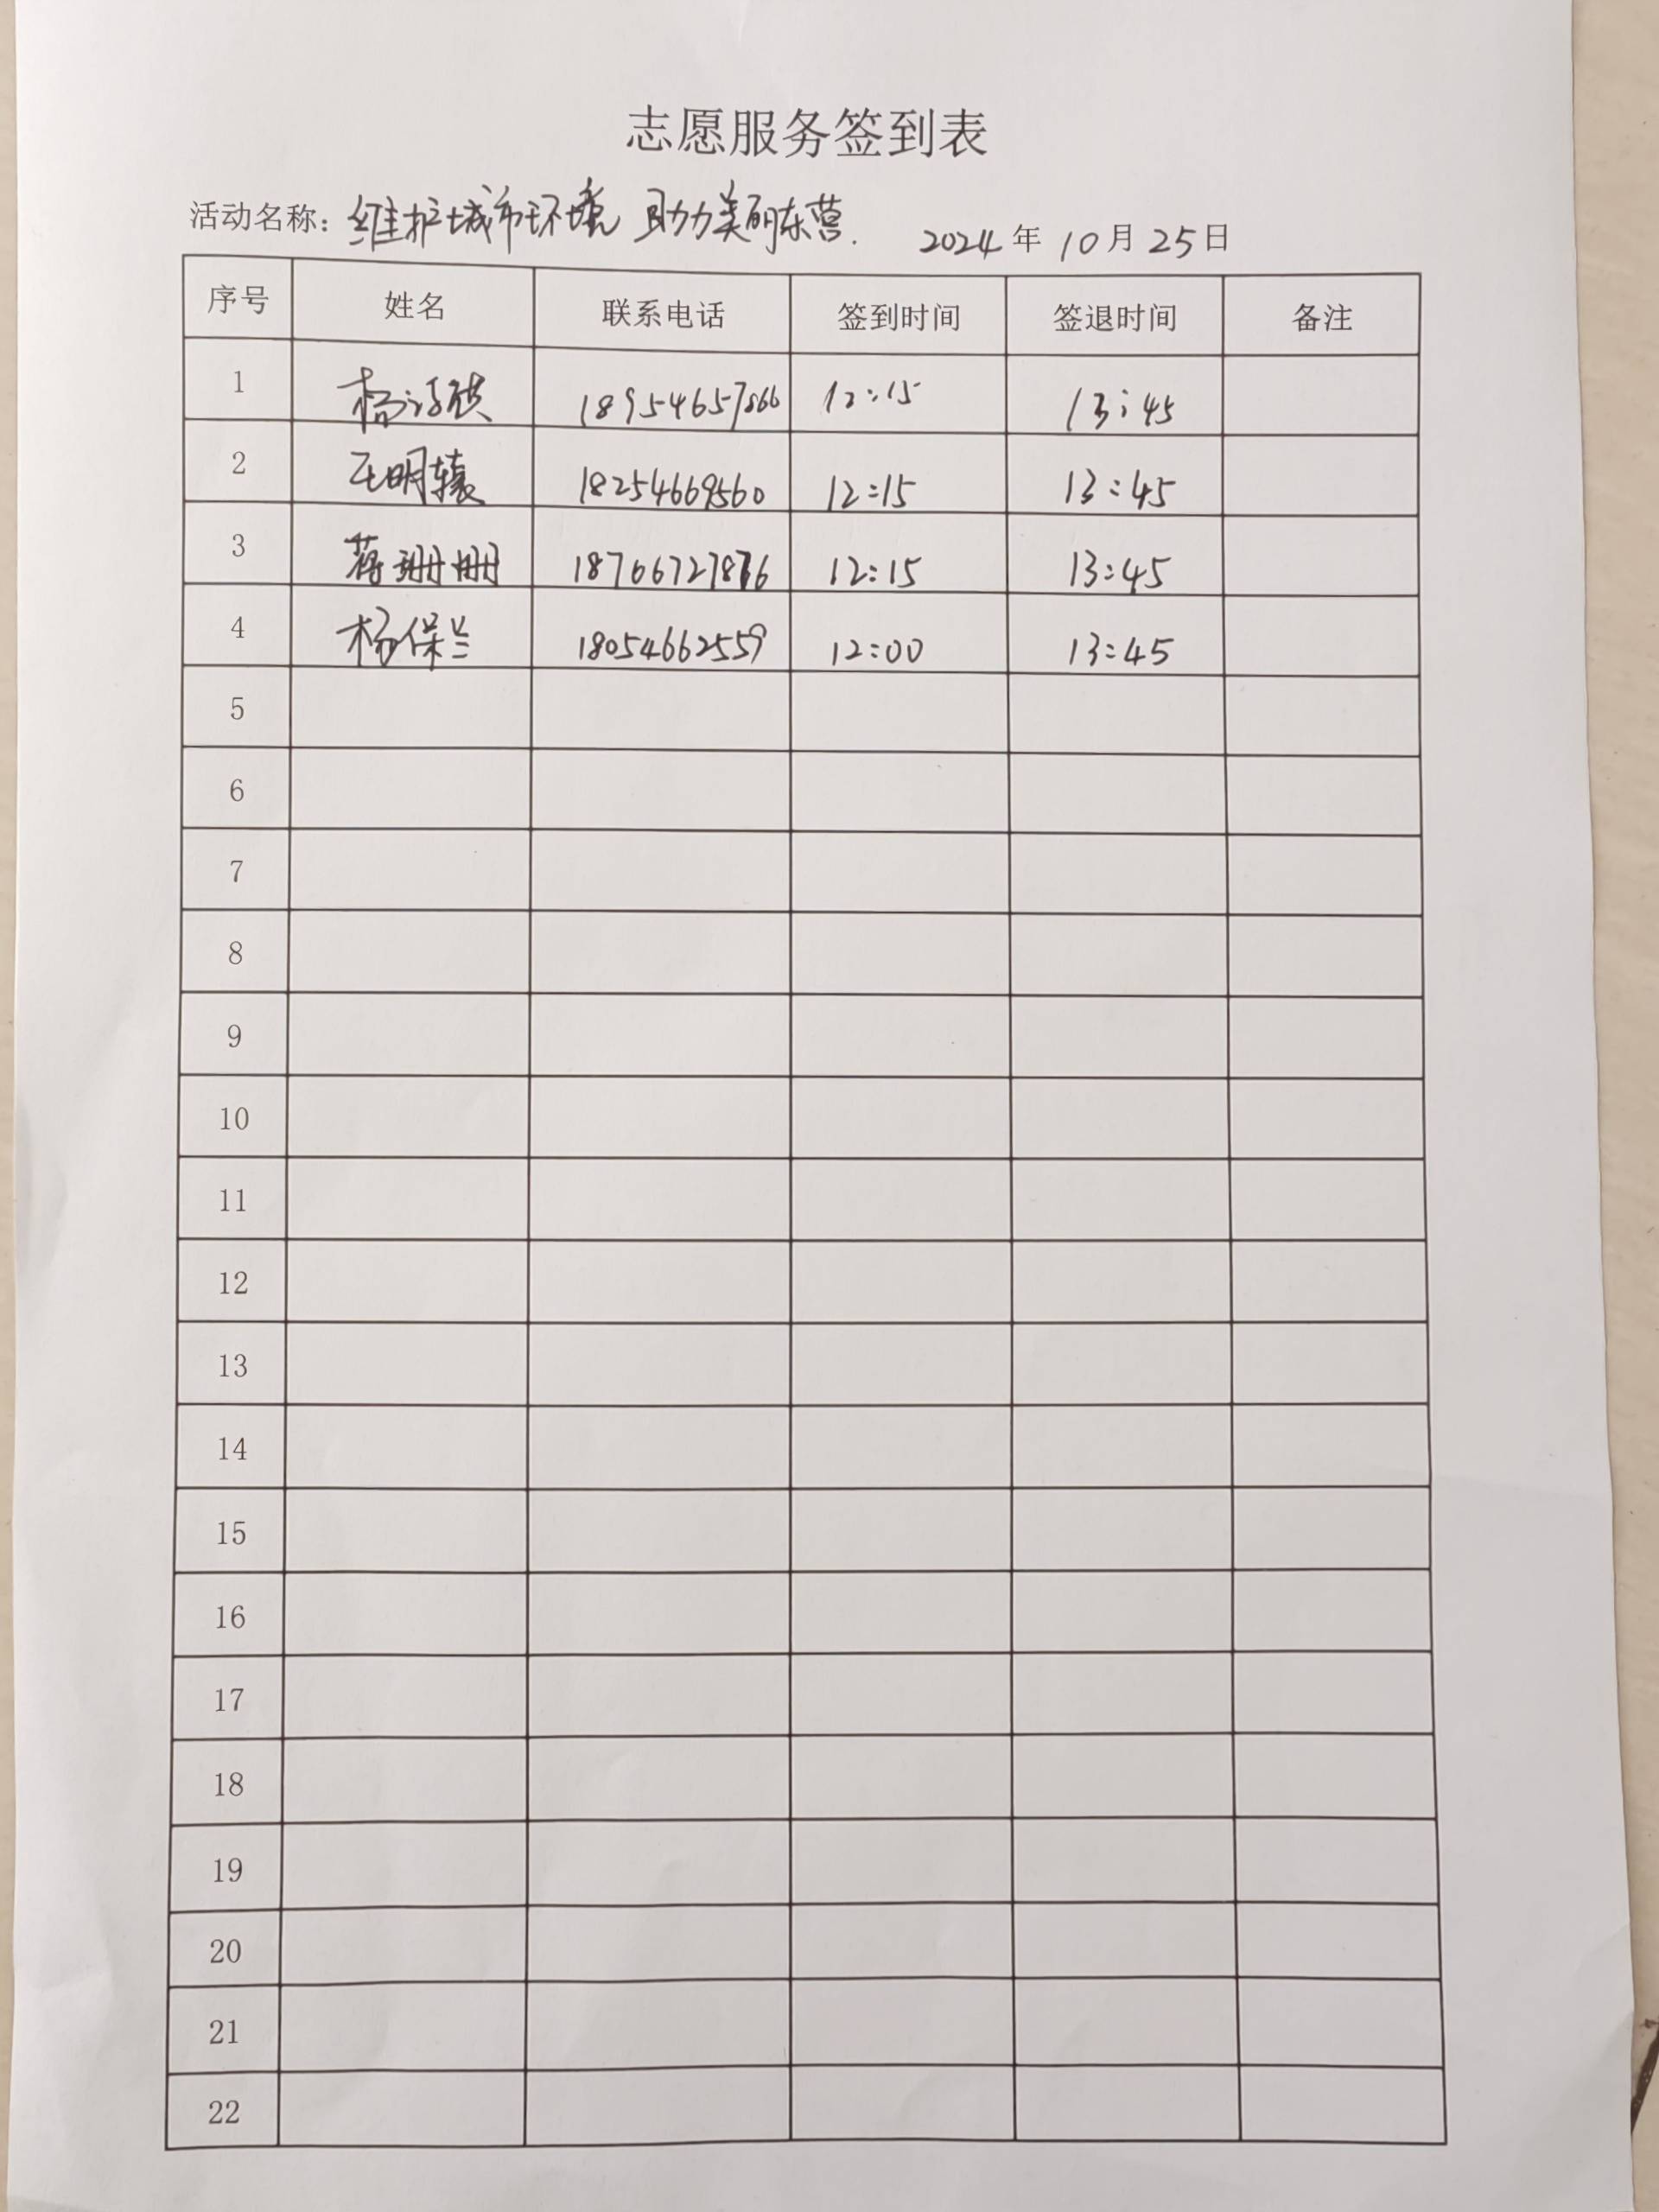 志愿服务签到表
活动名称: 维护城市环境 助力美丽东营. 2024年10月25日
序号 姓名 联系电话 签到时间 签退时间 备注
1 18954657866 12:15 13:45
2 王明辕 18254669560 12:15 13:45
3 蒋珊珊 12:15 13:45
4 杨保兰 18054662559 12:00 13:45
5
6
7
8
9
10
11
12
13
14
15
16
17
18
19
20
21
22